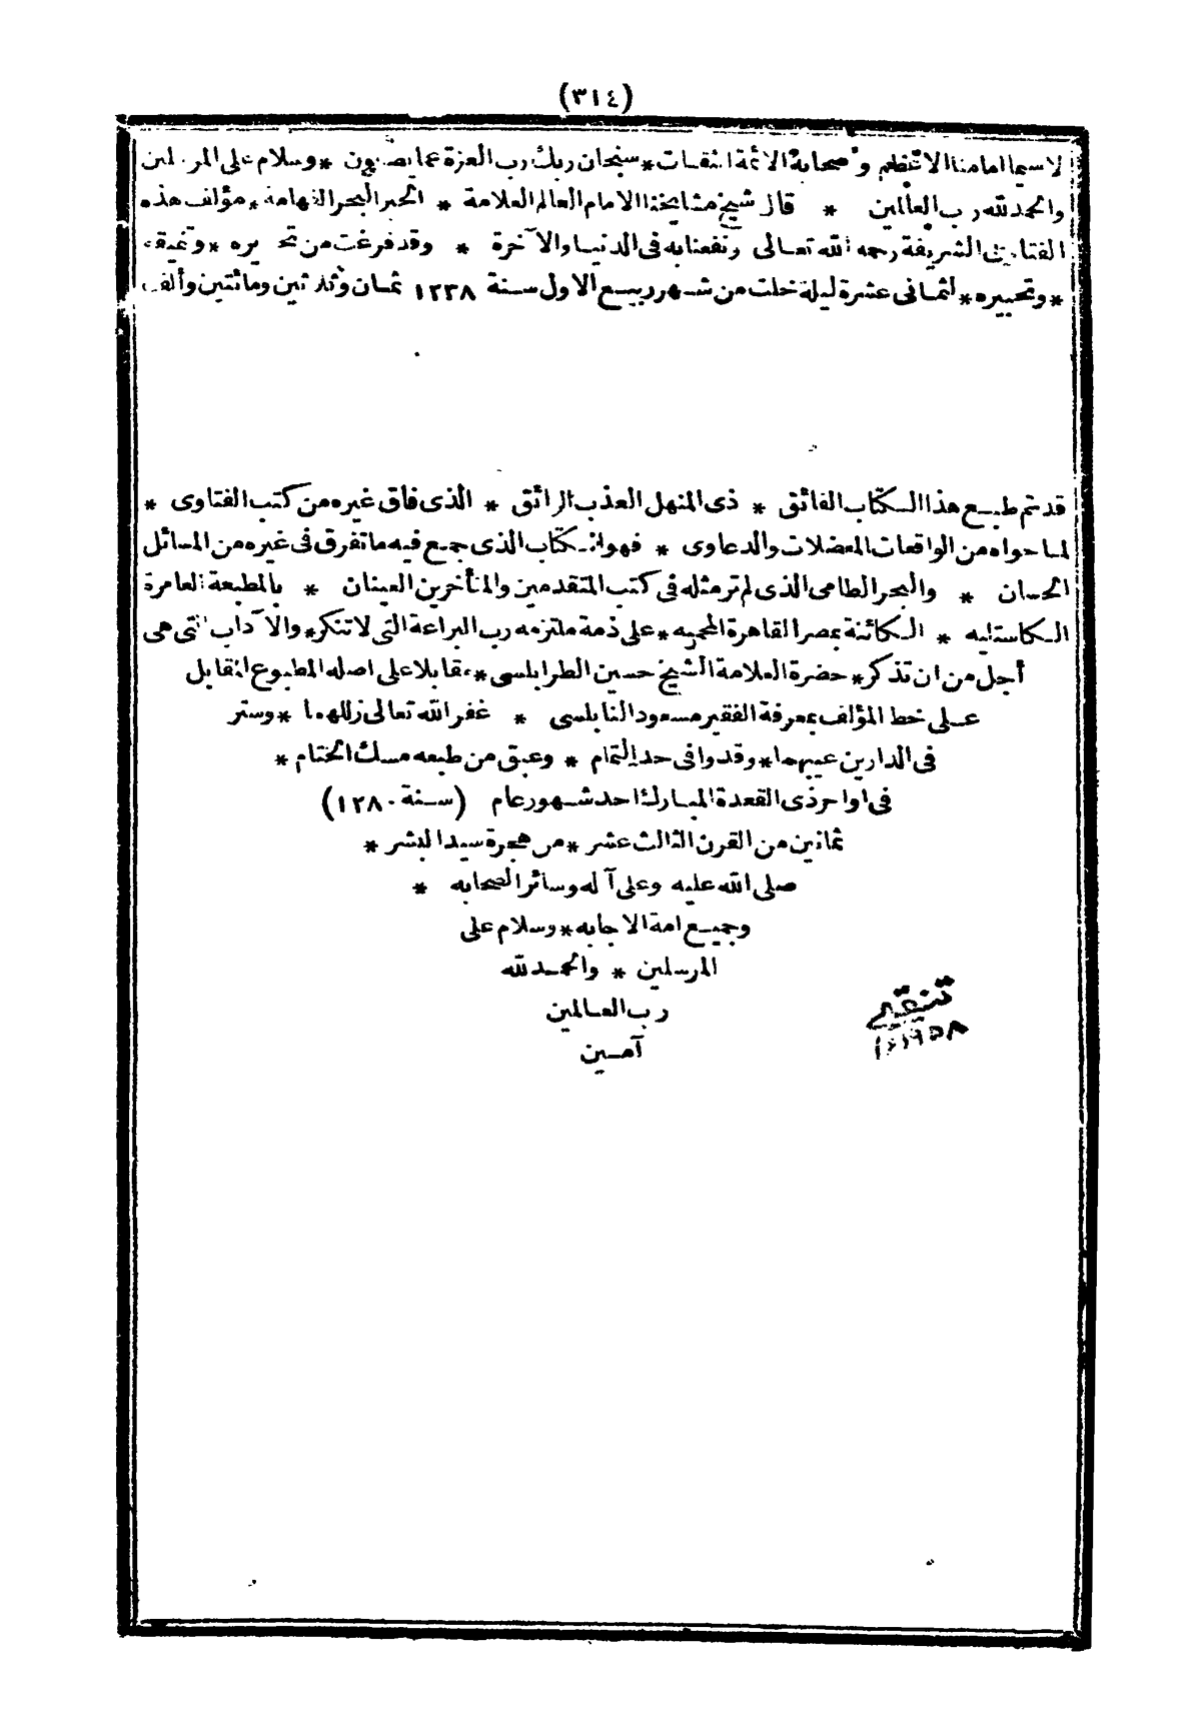 (٣١٤)
لاسيما امامنا الاعظم وأصحابه الائمة الثقات * سبحان ربك رب العزة عما يصفون * وسلام على المرسلين
والحمد لله رب العالمين * قال شيخ مشايخنا الامام العالم العلامة * الحبر البحر الفهامة * مؤلف هذه
الفتاوى الشريفة رحمه الله تعالى ونفعنا به فى الدنيا والآخرة * وقد فرغت من تحريره * وتنميقه
* وتحبيره * لثمانى عشرة ليلة خلت من شهر ربيع الاول سنة ١٢٣٨ ثمان وثلاثين ومائتين وألف
قد تم طبع هذا الكتاب الفائق * ذى المنهل العذب الرائق * الذى فاق غيره من كتب الفتاوى *
لما حواه من الواقعات المعضلات والدعاوى * فهو الكتاب الذى جمع فيه ما تفرق فى غيره من المسائل
الحسان * والبحر الطامى الذى لم تر مثله فى كتب المتقدمين والمتأخرين العينان * بالمطبعة العامرة
الكاستليه * الكائنة بمصر القاهرة المحميه * على ذمة ملتزمه رب البراعة التى لا تنكر * والآداب التى هى
أجل من ان تذكر * حضرة العلامة الشيخ حسين الطرابلسى * مقابلا على اصله المطبوع المقابل
على خط المؤلف بمعرفة الفقير مسعود النابلسى * غفر الله تعالى زللهما * وستر
فى الدارين عيبهما * وقد وافى حد التمام * وعبق من طبعه مسك الختام *
فى اواخر ذى القعدة المبارك احد شهور عام (سنة ١٢٨٠)
ثمانين من القرن الثالث عشر * من هجرة سيد البشر *
صلى الله عليه وعلى آله وسائر الصحابه *
وجميع امة الاجابه * وسلام على
المرسلين * والحمد لله
رب العالمين
آمين